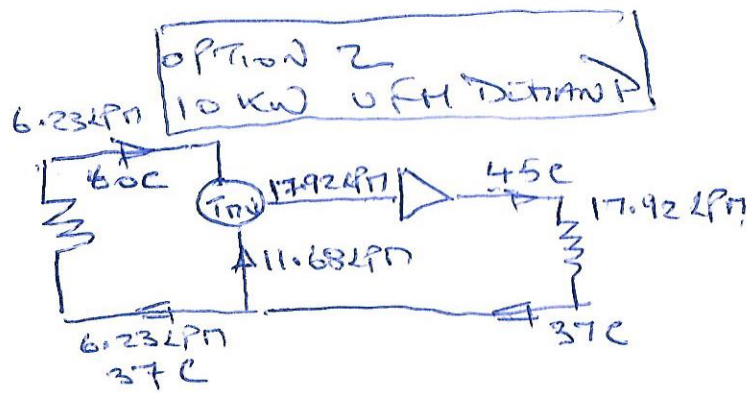 OPTION 2
10 KW UFH DEMAND
6.23LPM
60C
TMV
17.92LPM
45C
17.92LPM
11.68LPM
6.23LPM
37C
37C